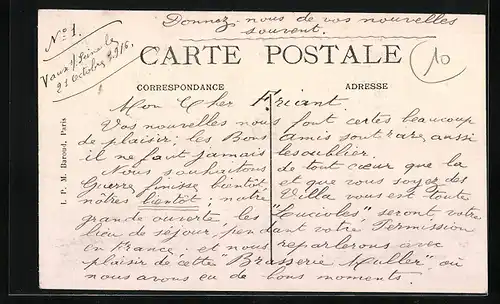 Donnez-nous de vos nouvelles
souvent.
N° 1.
Vaux s/ Seine le
21 Octobre 1916.
10
CARTE POSTALE
CORRESPONDANCE
ADRESSE
Mon Cher Friant.
Vos nouvelles nous font certes beaucoup
de plaisir; les Bons amis sont rare, aussi
il ne faut jamais les oublier.
Nous souhaitons de tout cœur que la
Guerre finisse bientôt, et que vous soyez des
nôtres bientôt; notre Villa vous est toute
grande ouverte, les "Lucioles" seront votre
lieu de séjour, pendant votre Permission
en France, et nous reparlerons avec
plaisir de cette "Brasserie Muller" où
nous avons eu de bons moments.
I. P. M. Baroud, Paris